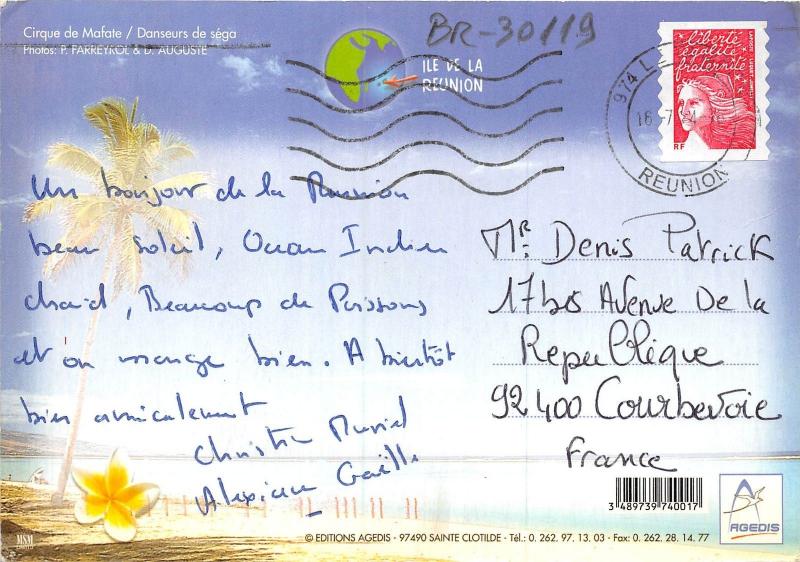 Cirque de Mafate / Danseurs de séga
Photos: P. FARREYROL & D. AUGUSTE
BR-30119
ILE DE LA
REUNION
liberté
égalité
fraternité
RF
974
REUNION
Un bonjour de la Réunion
beau soleil, Ocean Indien
chaud, Beaucoup de Poissons
et on mange bien. A bientôt
bien amicalement
Christine Muriel
Gaëlle
Mr. Denis Patrick
17bis Avenue De la
Republique
92400 Courbevoie
France
3 489739 740017
AGEDIS
MSM
© EDITIONS AGEDIS - 97490 SAINTE CLOTILDE - Tél.: 0. 262. 97. 13. 03 - Fax: 0. 262. 28. 14. 77